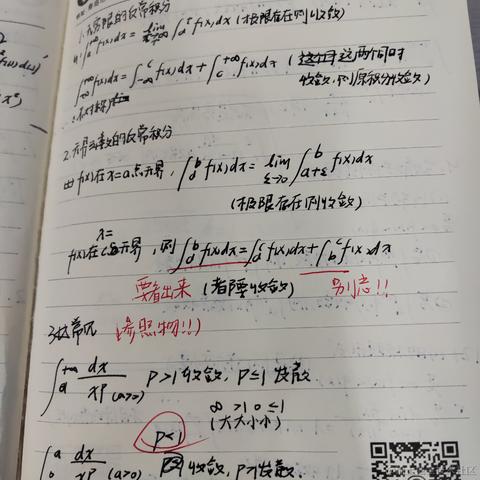 1.无穷限的反常积分
(1) ∫_a^{+∞} f(x)dx = lim_{x→∞} ∫_a^x f(x)dx (极限存在则收敛)
∫_{-∞}^{+∞} f(x)dx = ∫_{-∞}^c f(x)dx + ∫_c^{+∞} f(x)dx (这两个同时
收敛,则原积分收敛)
2.无界函数的反常积分
(1) f(x)在x=a点无界, ∫_a^b f(x)dx = lim_{ε→0} ∫_{a+ε}^b f(x)dx
(极限存在则收敛)
x=
f(x)在c点无界,则∫_a^b f(x)dx=∫_a^c f(x)dx+∫_b^c f(x)dx
要看出来 (都要收敛) 别忘!!
3.常见 (参照物!!)
∫_a^{+∞} dx/x^p (a>0) p>1收敛, p≤1发散
∞ >1 0 ≤1
(大大小小)
p<1
∫_0^a dx/x^p (a>0) 收敛, p≥1发散.